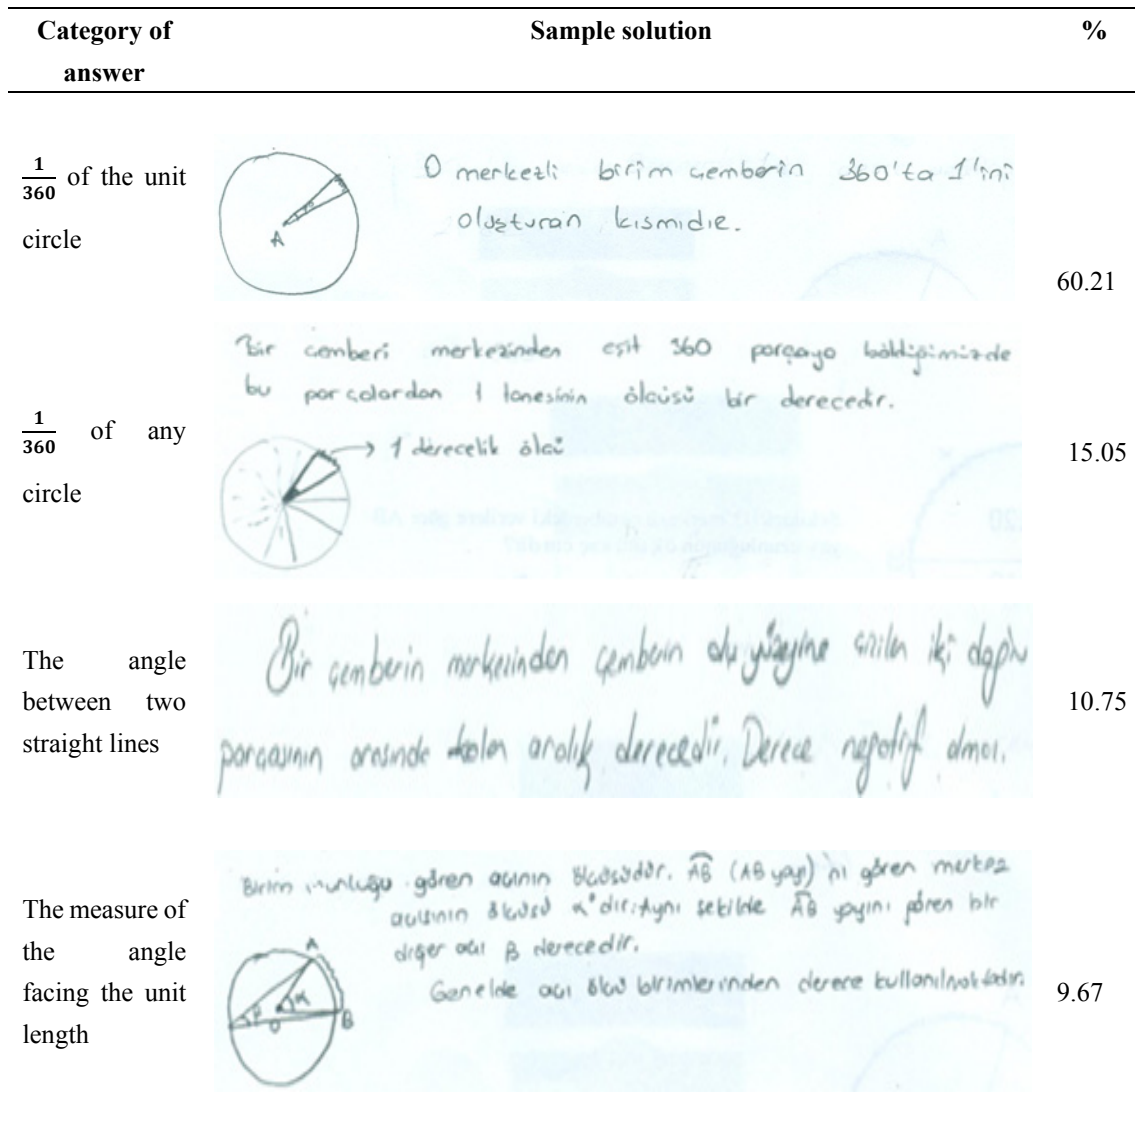 Category of answer Sample solution %
1/360 of the unit circle
A
O merkezli birim çemberin 360'ta 1'ini
oluşturan kısmıdır.
60.21
Bir çemberi merkezinden eşit 360 parçaya böldüğümüzde
bu parçalardan 1 tanesinin ölçüsü bir derecedir.
→ 1 derecelik ölçü
1/360 of any circle
15.05
The angle
between two
straight lines
Bir çemberin merkezinden çemberin dış yüzeyine çizilen iki doğru
parçasının arasında kalan aralık derecedir. Derece negatif olmaz.
10.75
The measure of
the angle
facing the unit
length
Birim uzunluğu gören açının ölçüsüdür. AB (AB yayı)'nı gören merkez
açısının ölçüsü α° dir. Aynı şekilde AB yayını gören bir
diğer açı β derecedir.
Genelde açı ölçü birimlerinden derece kullanılmaktadır.
A
β α
O B
9.67